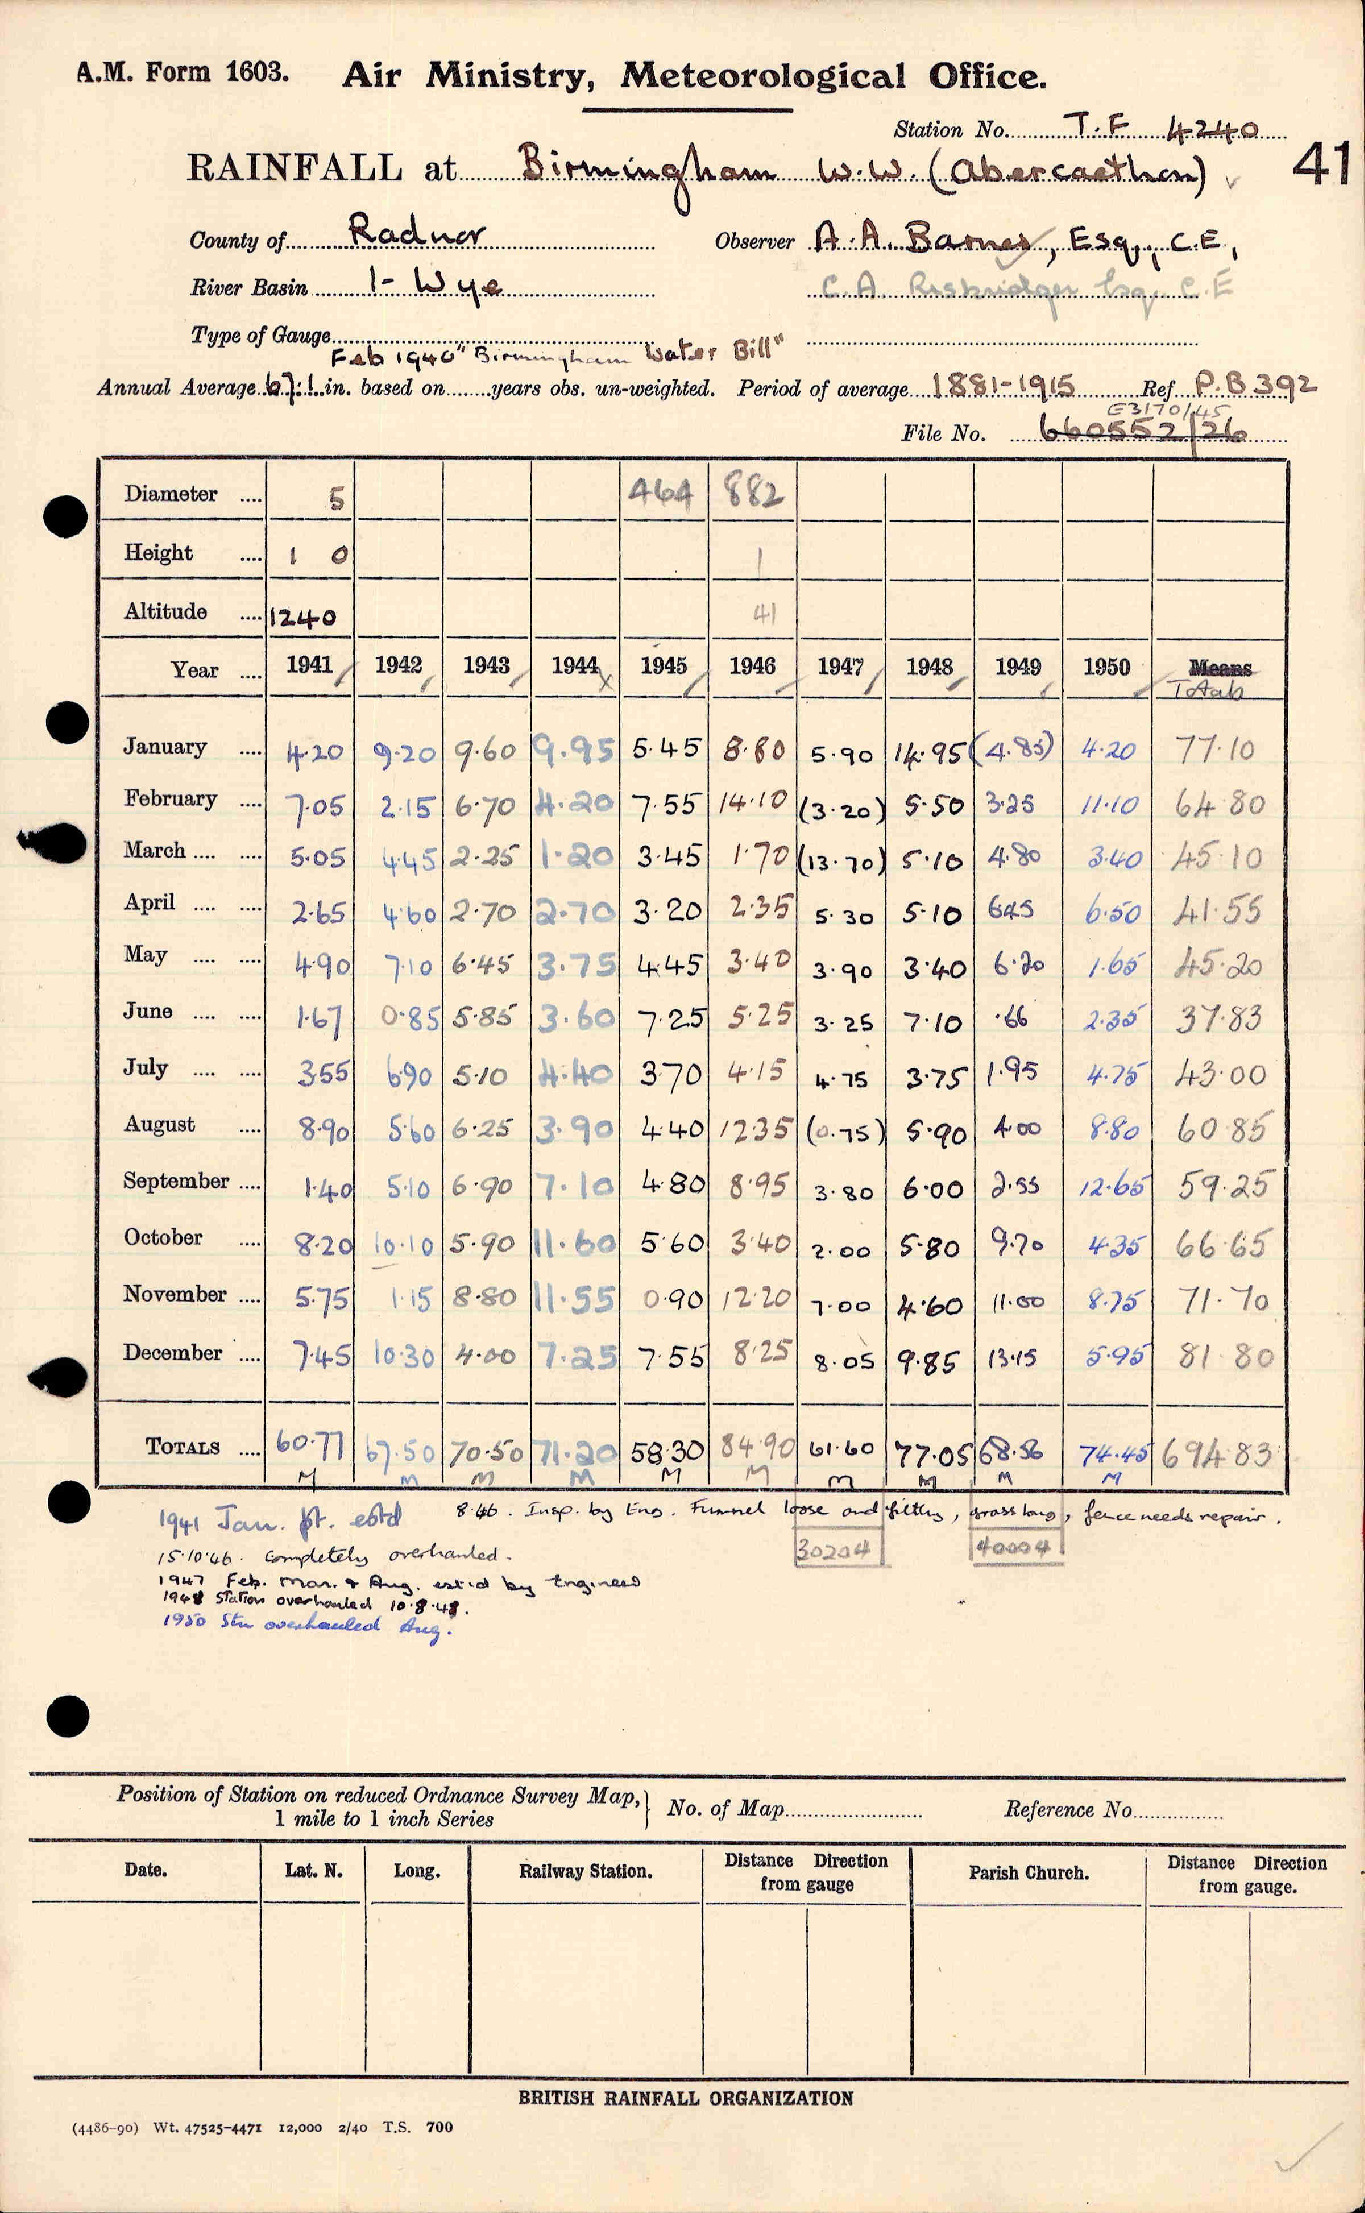 A.M. Form 1603. Air Ministry, Meteorological Office.
Station No. T.F 4240
41
RAINFALL at Birmingham W.W. (Abercaethon)
County of Radnor Observer A.A. Barnes, Esq., C.E.,
River Basin 1- Wye C.A. Risbridger Esq. C.E
Type of Gauge
Feb 1940 "Birmingham Water Bill"
Annual Average 67.1 in. based on years obs. un-weighted. Period of average 1881-1915 Ref P.B 392
E3170/45
File No. 660552/26
Diameter 5 464 882
Height 1 0 1
Altitude 1240 41
Year 1941 1942 1943 1944 1945 1946 1947 1948 1949 1950 Means
Totals
January 4.20 9.20 9.60 9.95 5.45 8.80 5.90 14.95 (4.85) 4.20 77.10
February 7.05 2.15 6.70 4.20 7.55 14.10 (3.20) 5.50 3.25 11.10 64.80
March 5.05 4.45 2.25 1.20 3.45 1.70 (13.70) 5.10 4.80 3.40 45.10
April 2.65 4.60 2.70 2.70 3.20 2.35 5.30 5.10 6.45 6.50 41.55
May 4.90 7.10 6.45 3.75 4.45 3.40 3.90 3.40 6.20 1.65 45.20
June 1.67 0.85 5.85 3.60 7.25 5.25 3.25 7.10 .66 2.35 37.83
July 3.55 6.90 5.10 4.40 3.70 4.15 4.75 3.75 1.95 4.75 43.00
August 8.90 5.60 6.25 3.90 4.40 12.35 (0.75) 5.90 4.00 8.80 60.85
September 1.40 5.10 6.90 7.10 4.80 8.95 3.80 6.00 2.55 12.65 59.25
October 8.20 10.10 5.90 11.60 5.60 3.40 2.00 5.80 9.70 4.35 66.65
November 5.75 1.15 8.80 11.55 0.90 12.20 7.00 4.60 11.00 8.75 71.70
December 7.45 10.30 4.00 7.25 7.55 8.25 8.05 9.85 13.15 5.95 81.80
TOTALS 60.77 67.50 70.50 71.20 58.30 84.90 61.60 77.05 68.56 74.45 694.83
M M M M M M M M M M
1941 Jan. pt. estd 8.46. Insp. by Eng. Funnel loose and filthy, grass long, fence needs repair.
30204 40004
15.10.46. Completely overhauled.
1947 Feb. Mar. & Aug. est'd by Engineer
1948 Station overhauled 10.8.48.
1950 Stn overhauled Aug.
Position of Station on reduced Ordnance Survey Map, 1 mile to 1 inch Series No. of Map Reference No
Date. Lat. N. Long. Railway Station. Distance Direction from gauge Parish Church. Distance Direction from gauge.
BRITISH RAINFALL ORGANIZATION
(4486-90) Wt. 47525-4471 12,000 2/40 T.S. 700